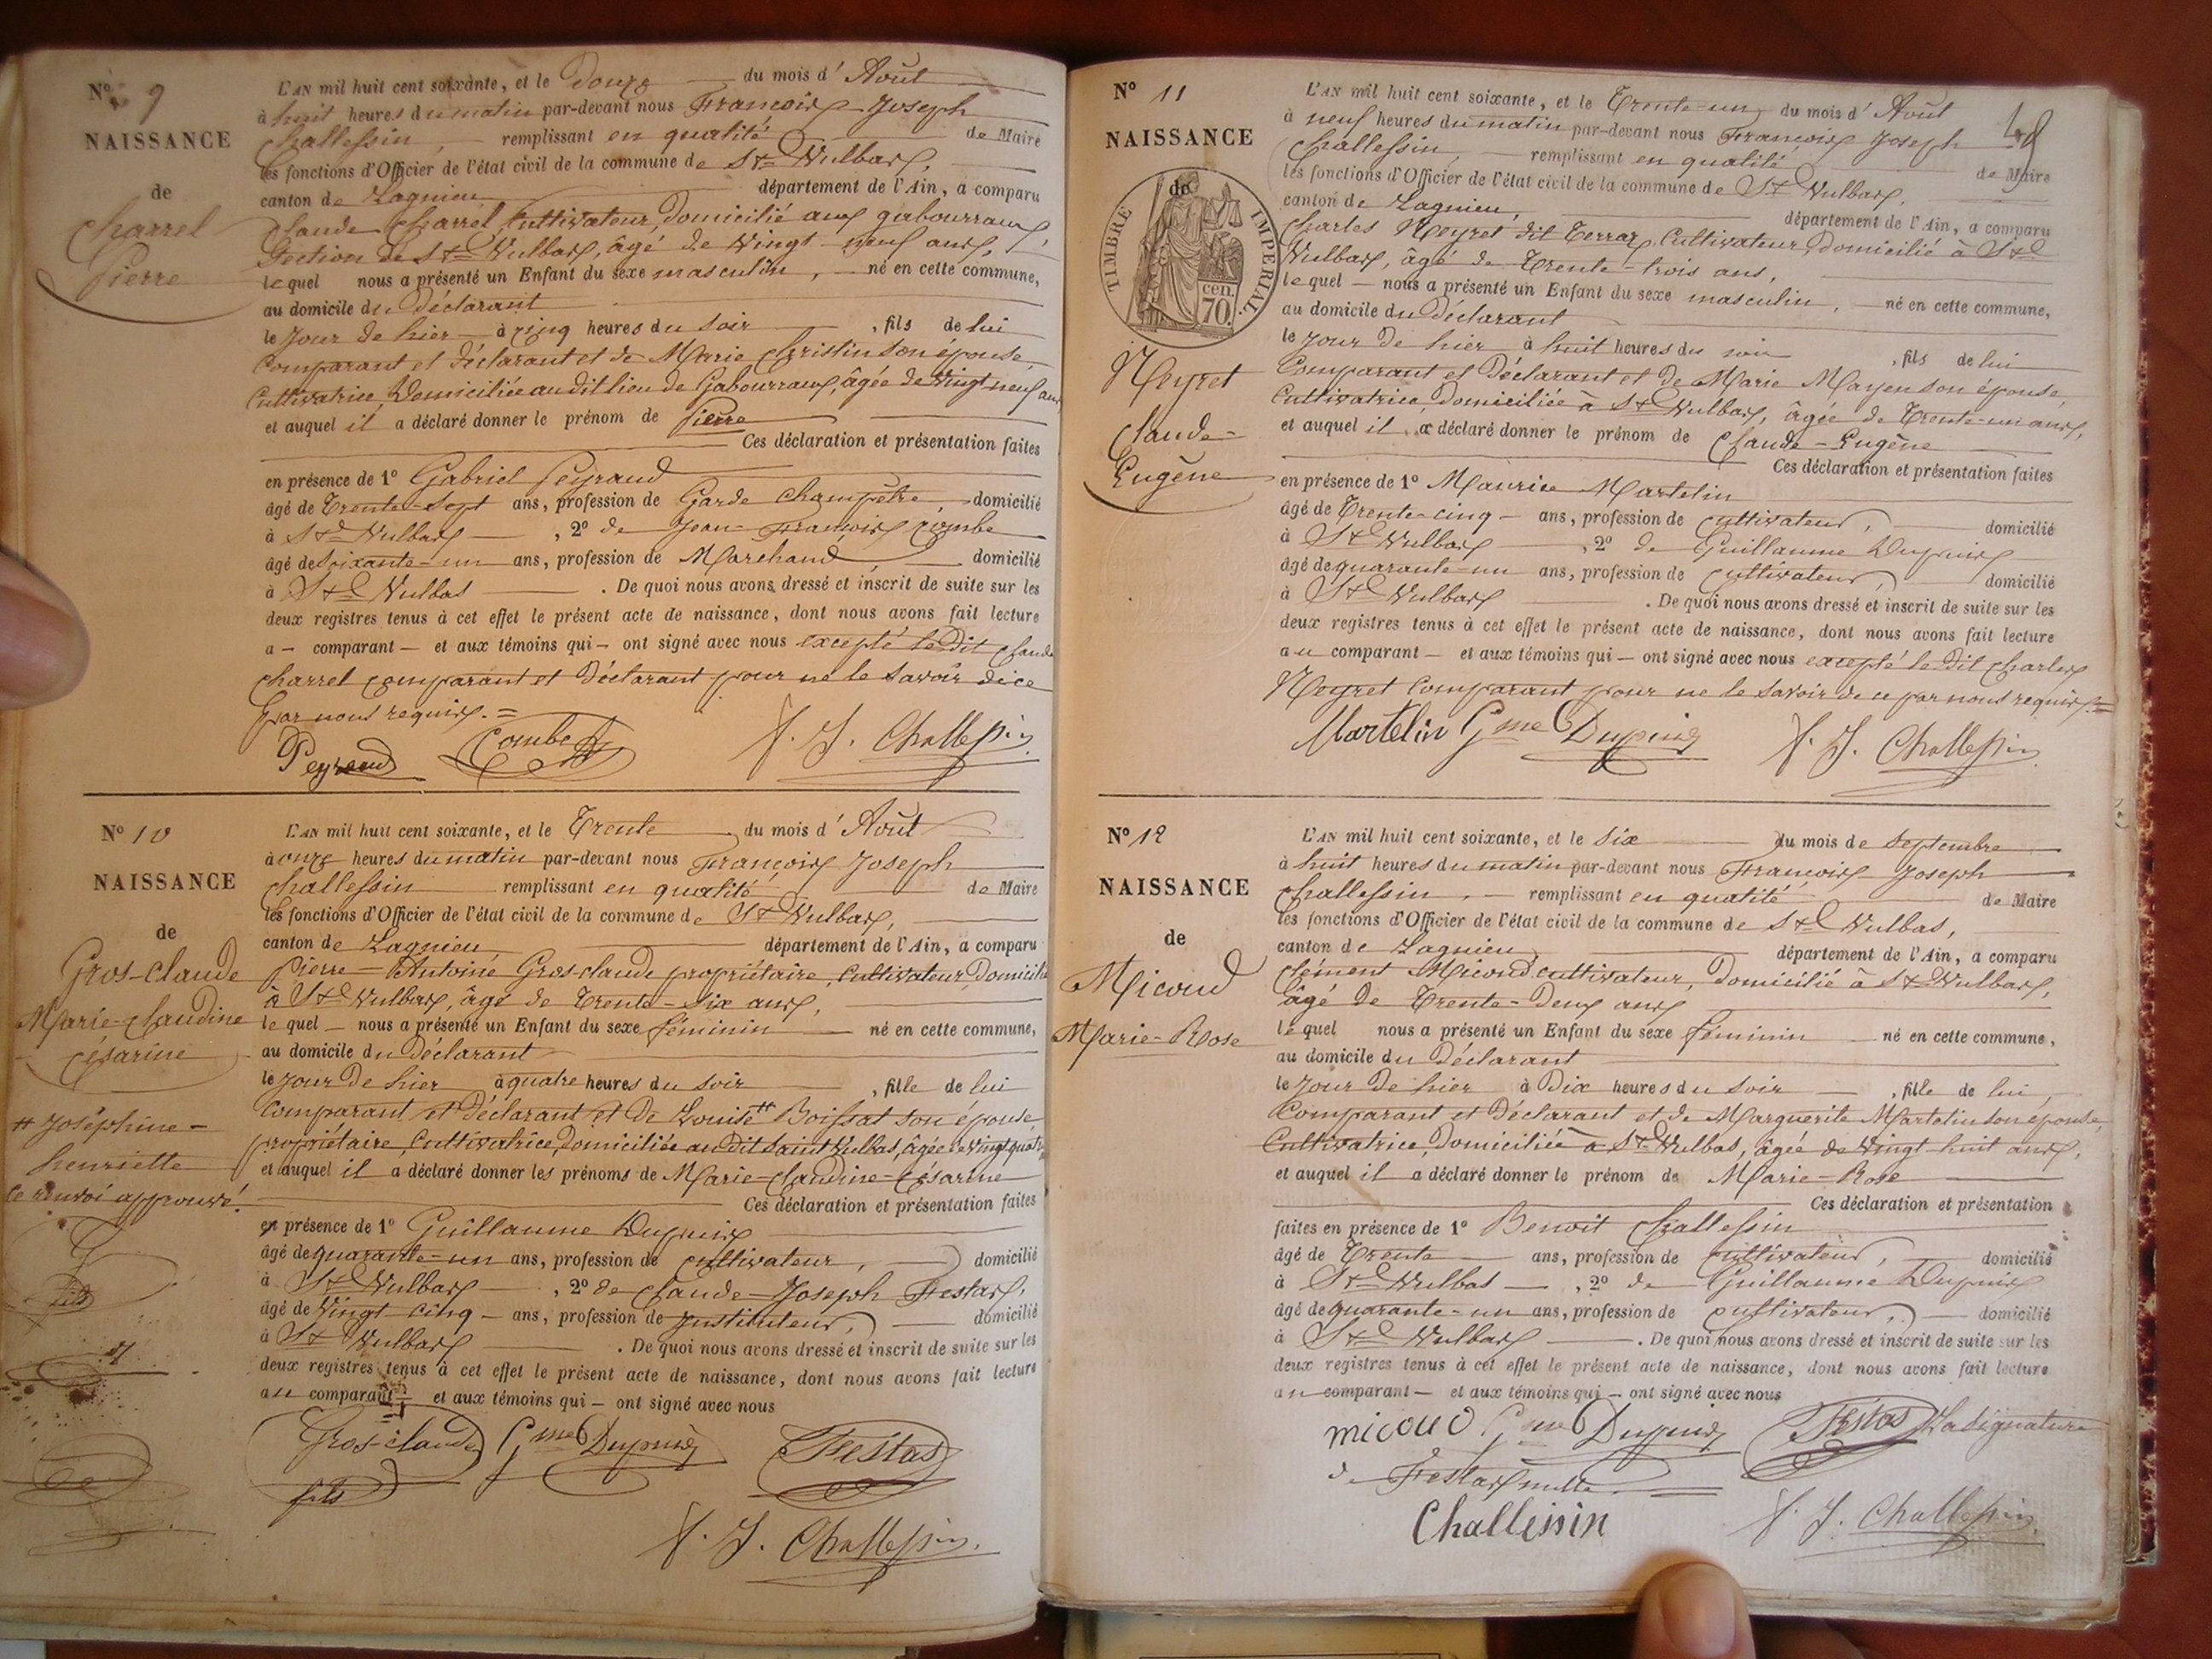 N° 9
NAISSANCE
de
Charrel
Pierre
L'AN mil huit cent soixante, et le Douze du mois d'Août
à huit heures du matin par-devant nous François Joseph
Challessin, remplissant en qualité de Maire
les fonctions d'Officier de l'état civil de la commune de St Vulbas,
canton de Lagnieu département de l'Ain, a comparu
Claude Charrel, Cultivateur, Domicilié aux gabourraux,
Section de St Vulbas, âgé de Vingt-neuf ans,
lequel nous a présenté un Enfant du sexe masculin, né en cette commune,
au domicile du Déclarant
le jour de hier à cinq heures du soir, fils de lui
Comparant et déclarant et de Marie Christin son épouse,
Cultivatrice, Domiciliée au dit lieu de Gabourraux, âgée de Vingt-neuf ans
et auquel il a déclaré donner le prénom de Pierre
Ces déclaration et présentation faites
en présence de 1° Gabriel Peyraud
âgé de Trente-Sept ans, profession de Garde Champêtre, domicilié
à St Vulbas, 2° de Jean-François Combe
âgé de Soixante-un ans, profession de Marchand, domicilié
à St Vulbas. De quoi nous avons dressé et inscrit de suite sur les
deux registres tenus à cet effet le présent acte de naissance, dont nous avons fait lecture
a - comparant - et aux témoins qui - ont signé avec nous excepté le dit Claude
Charrel comparant et Déclarant pour ne le savoir de ce
par nous requis. =
Peyraud Combe f. J. Challessin
N° 10
NAISSANCE
de
Gros-claude
Marie-Claudine
Césarine
# Joséphine-
henriette
le renvoi approuvé.
L'AN mil huit cent soixante, et le Trente du mois d'Août
à onze heures du matin par-devant nous François Joseph
Challessin remplissant en qualité de Maire
les fonctions d'Officier de l'état civil de la commune de St Vulbas,
canton de Lagnieu département de l'Ain, a comparu
Pierre-Antoine Gros-claude propriétaire, Cultivateur, Domicilié
à St Vulbas, âgé de Trente-Six ans,
lequel - nous a présenté un Enfant du sexe féminin né en cette commune,
au domicile du Déclarant
le jour de hier à quatre heures du soir, fille de lui
Comparant et Déclarant et De Louise # Boissat son épouse,
propriétaire, Cultivatrice, Domiciliée au dit Saint Vulbas, âgée de Vingt quatre
et auquel il a déclaré donner les prénoms de Marie-Claudine-Césarine
Ces déclaration et présentation faites
en présence de 1° Guillaume Dupuis
âgé de quarante-un ans, profession de cultivateur, domicilié
à St Vulbas, 2° de Claude-Joseph Festas,
âgé de Vingt cinq - ans, profession de Instituteur, domicilié
à St Vulbas. De quoi nous avons dressé et inscrit de suite sur les
deux registres tenus à cet effet le présent acte de naissance, dont nous avons fait lecture
au comparant et aux témoins qui - ont signé avec nous
Gros-claude Gme Dupuis Festas
fils
f. J. Challessin.
48
N° 11
NAISSANCE
de
TIMBRE IMPERIAL
70 cen.
Neyret
Claude-
Eugène
L'AN mil huit cent soixante, et le Trente-un du mois d'Août
à neuf heures du matin par-devant nous François Joseph
Challessin, remplissant en qualité de Maire
les fonctions d'Officier de l'état civil de la commune de St Vulbas,
canton de Lagnieu, département de l'Ain, a comparu
Charles Neyret dit Terraz, Cultivateur, Domicilié à St
Vulbas, âgé de Trente-trois ans,
lequel - nous a présenté un Enfant du sexe masculin, né en cette commune,
au domicile du Déclarant
le jour de hier à huit heures du soir, fils de lui
Comparant et Déclarant et de Marie Mayen son épouse,
Cultivatrice, Domiciliée à St Vulbas, âgée de Trente-un ans,
et auquel il a déclaré donner le prénom de Claude-Eugène
Ces déclaration et présentation faites
en présence de 1° Maurice Martelin
âgé de Trente-cinq - ans, profession de cultivateur, domicilié
à St Vulbas, 2° de Guillaume Dupuis
âgé de quarante-un ans, profession de cultivateur, domicilié
à St Vulbas. De quoi nous avons dressé et inscrit de suite sur les
deux registres tenus à cet effet le présent acte de naissance, dont nous avons fait lecture
au comparant - et aux témoins qui - ont signé avec nous excepté le dit Charles
Neyret Comparant pour ne le savoir de ce par nous requis. =
Martelin Gme Dupuis f. J. Challessin
N° 12
NAISSANCE
de
Micoud
Marie-Rose
L'AN mil huit cent soixante, et le Six du mois de Septembre
à huit heures du matin par-devant nous François Joseph
Challessin, remplissant en qualité de Maire
les fonctions d'Officier de l'état civil de la commune de St Vulbas,
canton de Lagnieu, département de l'Ain, a comparu
Clément Micoud, cultivateur, Domicilié à St Vulbas,
âgé de Trente-Deux ans
lequel nous a présenté un Enfant du sexe féminin né en cette commune,
au domicile du Déclarant
le jour De hier à Dix heures du soir, fille de lui,
Comparant et Déclarant et de Marguerite Martelin son épouse,
Cultivatrice, Domiciliée à St Vulbas, âgée de Vingt-huit ans,
et auquel il a déclaré donner le prénom de Marie-Rose
Ces déclaration et présentation
faites en présence de 1° Benoît Challessin
âgé de Trente ans, profession de cultivateur, domicilié
à St Vulbas, 2° de Guillaume Dupuis
âgé de quarante-un ans, profession de cultivateur, domicilié
à St Vulbas. De quoi nous avons dressé et inscrit de suite sur les
deux registres tenus à cet effet le présent acte de naissance, dont nous avons fait lecture
au comparant - et aux témoins qui - ont signé avec nous
micoud Gme Dupuis Festas La signature
de Festas nulle.
Challessin f. J. Challessin